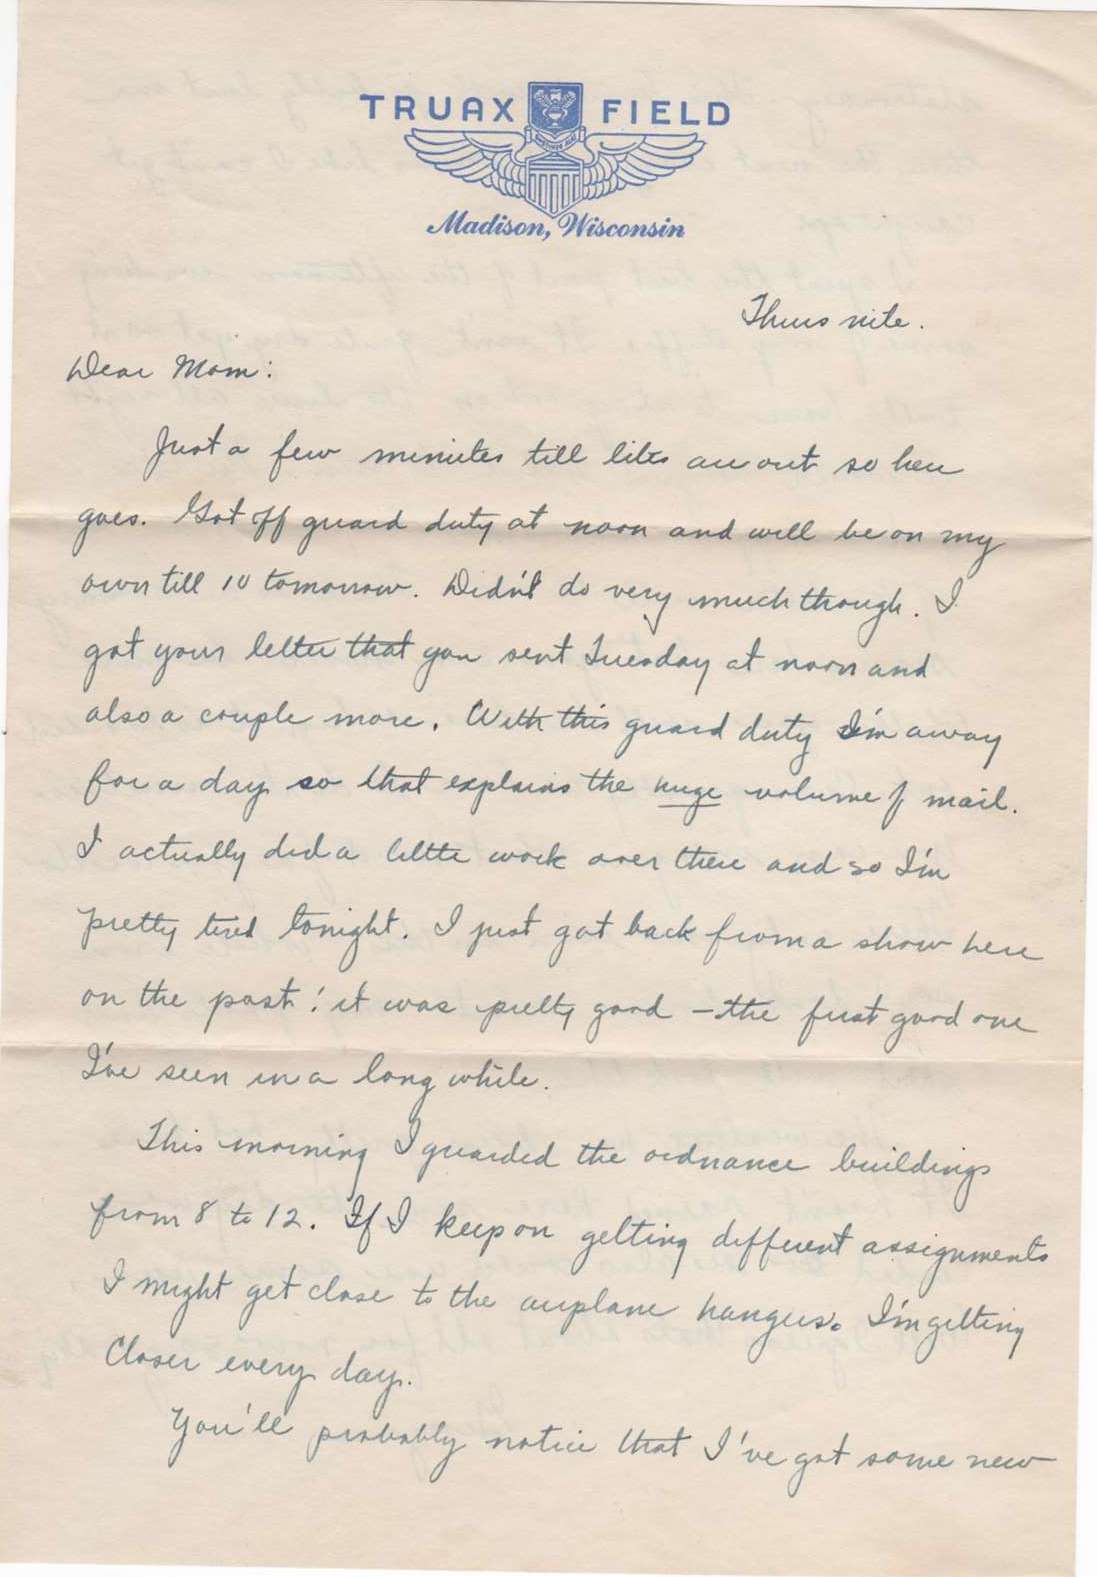 TRUAX FIELD
Madison, Wisconsin
Thurs nite.
Dear Mom:
Just a few minutes till lites are out so here
goes. Got off guard duty at noon and will be on my
own till 10 tomorrow. Didn't do very much though. I
got your letter that you sent Tuesday at noon and
also a couple more. With this guard duty I'm away
for a day so that explains the huge volume of mail.
I actually did a little work over there and so I'm
pretty tired tonight. I just got back from a show here
on the post: it was pretty good – the first good one
I've seen in a long while.
This morning I guarded the ordnance buildings
from 8 to 12. If I keep on getting different assignments
I might get close to the airplane hangers. I'm getting
closer every day.
You'll probably notice that I've got some new